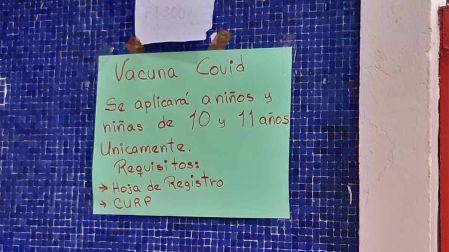 Vacuna Covid
Se aplicará a niños y
niñas de 10 y 11 años
Unicamente.
Requisitos:
→ Hoja de Registro
→ CURP